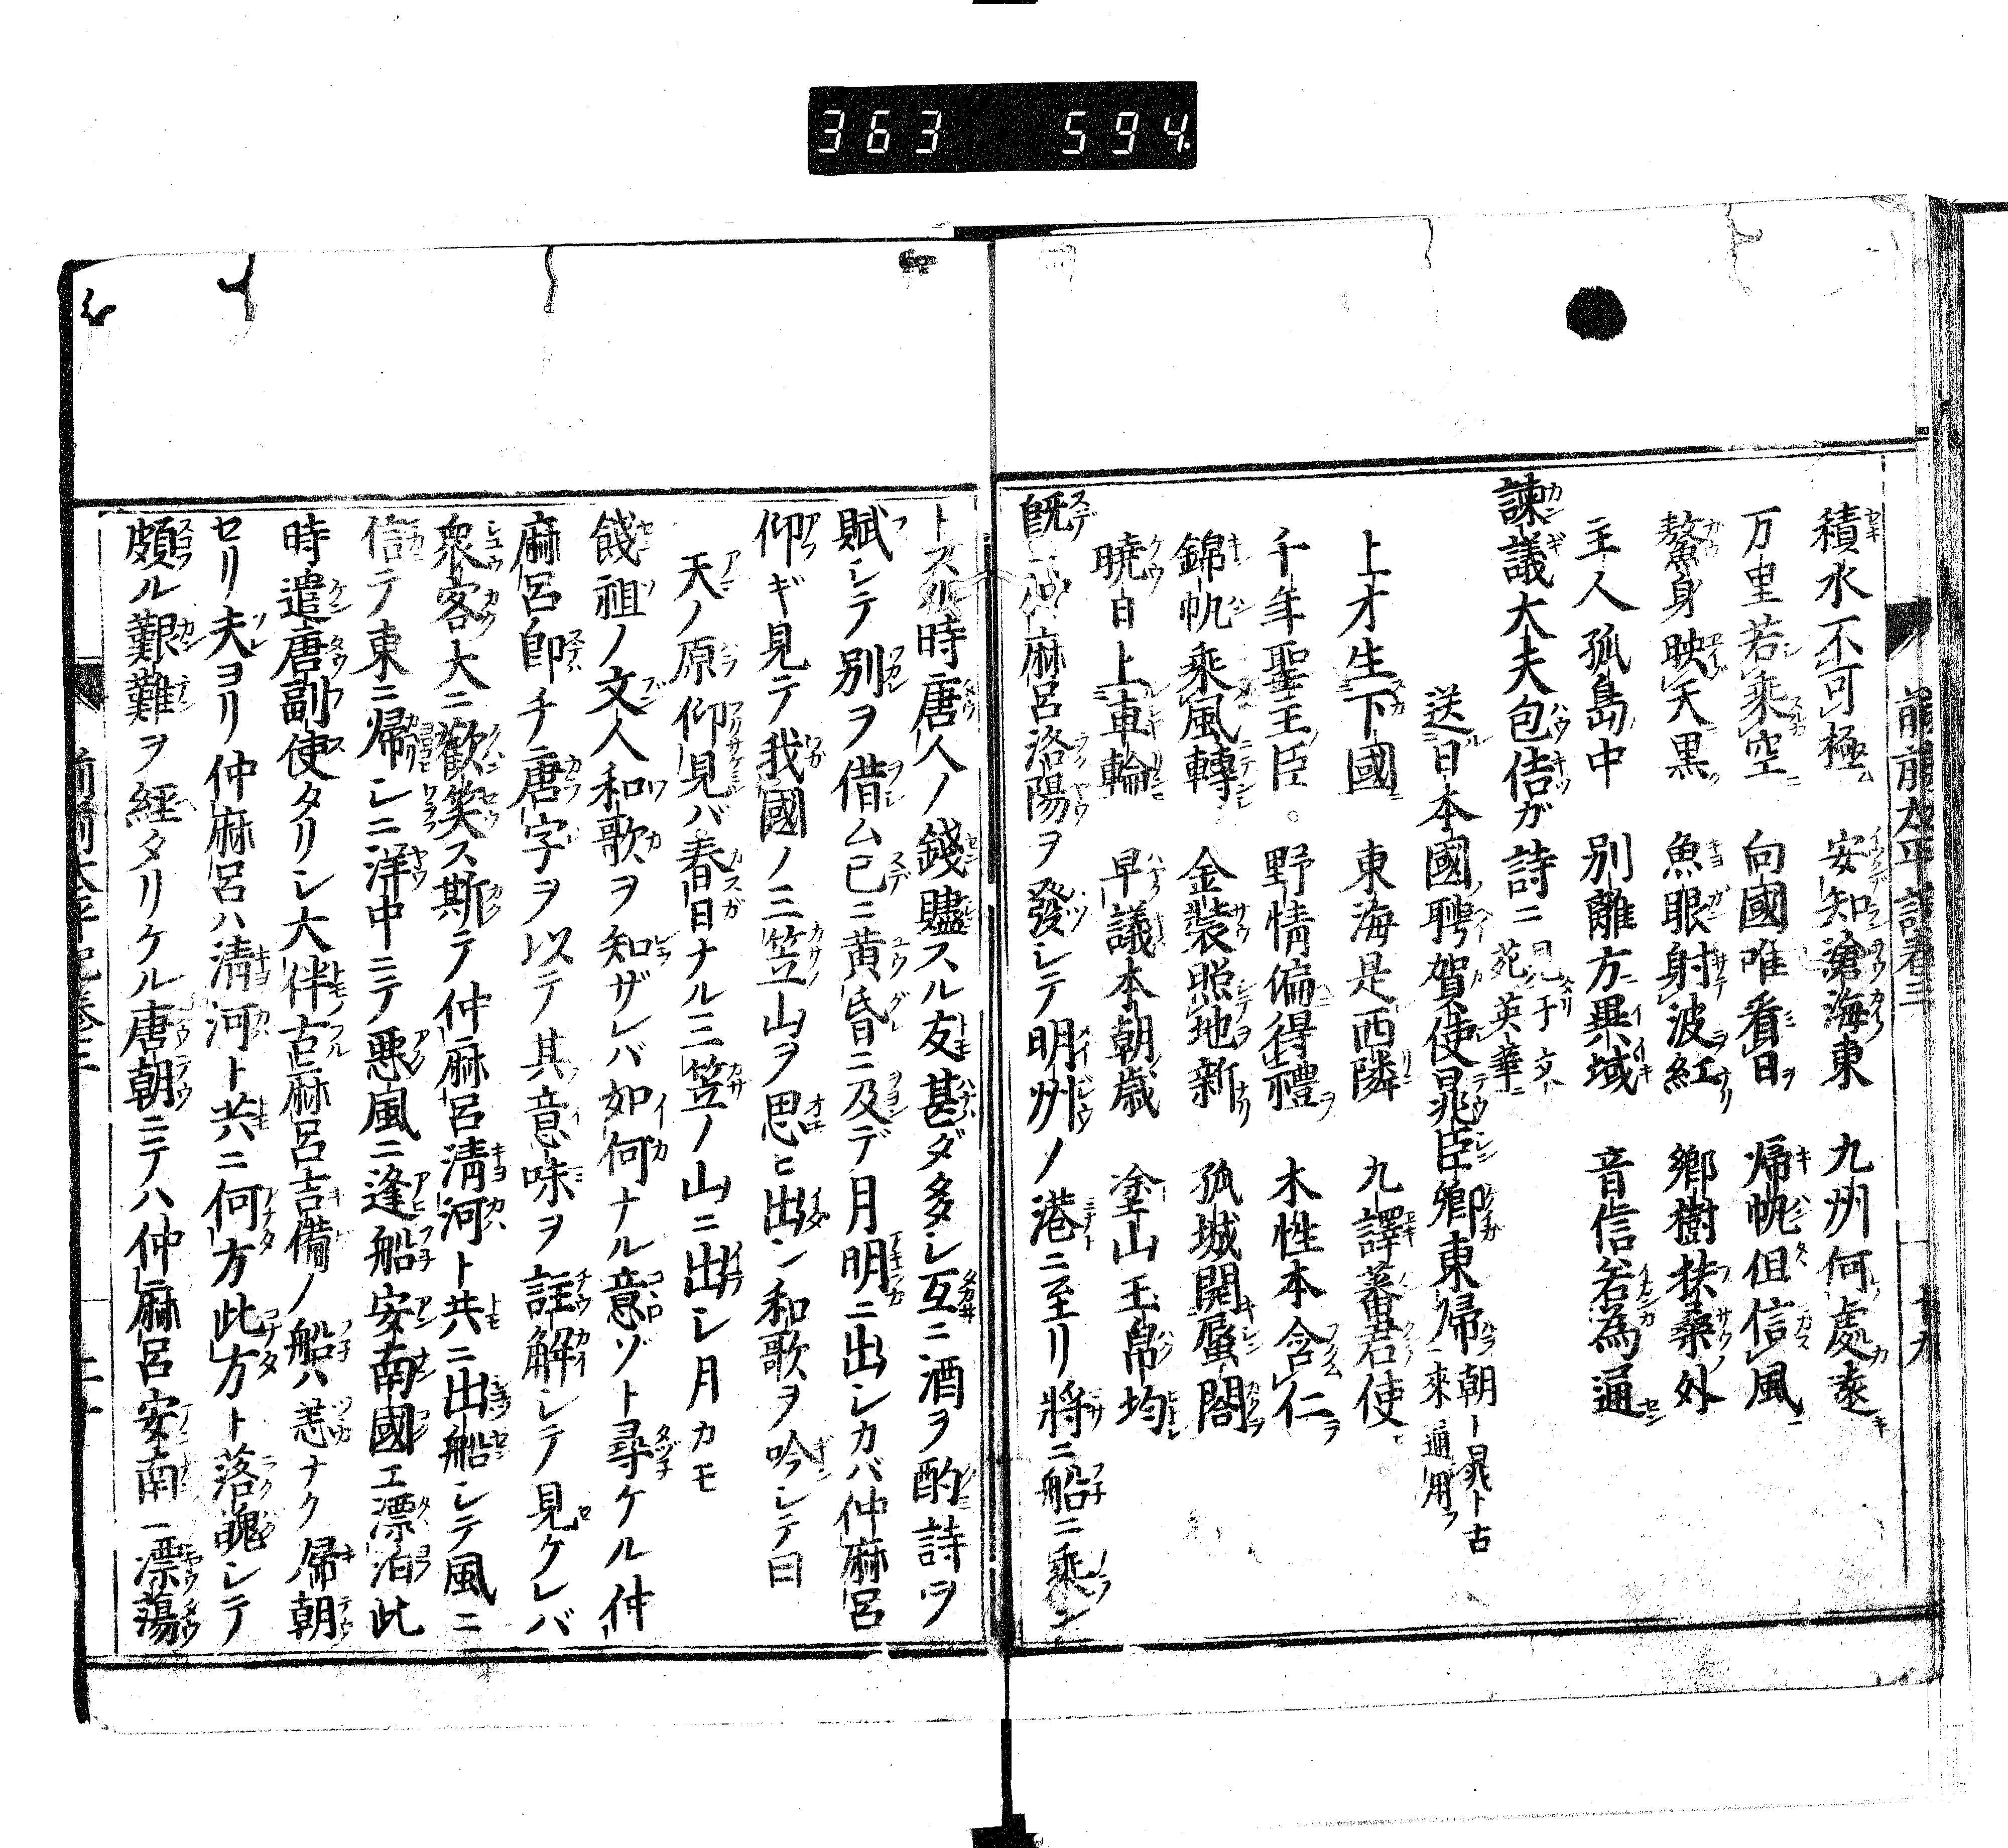 363 594
前前太平記卷三 十九
積水不可極 安知滄海東 九州何處遠
万里若乘空 向國唯看日 帰帆但信風
鰲身映天黒 魚眼射波紅 鄉樹扶桑外
主人孤島中 別離方異域 音信若為通
諫議大夫包佶ガ詩ニ
苑英華ニ
送日本國聘賀使晁臣卿東帰
朝ト晁ト古
來通用フ
上才生下國 東海是西隣 九譯蕃君使
千年聖王臣。 野情偏得禮 木性本含仁
錦帆乘風轉 金裝照地新 孤城開蜃閣
曉日上車輪 早議本朝歲 塗山玉帛均
既ニ仲麻呂洛陽ヲ發シテ明州ノ港ニ至リ將ニ船ニ乘ン
トスル時唐人ノ餞贐スル友甚ダ多シ互ニ酒ヲ酌詩ヲ
賦シテ別ヲ借ム已ニ黄昏ニ及デ月明ニ出シカバ仲麻呂
仰ギ見テ我國ノ三笠山ヲ思ヒ出シ和歌ヲ吟シテ曰
天ノ原仰見バ春日ナル三笠ノ山ニ出シ月カモ
餞祖ノ文人和歌ヲ知ザレバ如何ナル意ゾト尋ケル仲
麻呂卽チ唐字ヲ以テ其意味ヲ註解シテ見ケレバ
衆客大ニ歡笑ス斯テ仲麻呂清河ト共ニ出船シテ風ニ
信テ東ニ帰シニ洋中ニテ悪風ニ逢船安南國エ漂泊此
時遣唐副使タリシ大伴古麻呂吉備ノ船ハ恙ナク帰朝
セリ夫ヨリ仲麻呂ハ清河ト共ニ何方此方ト落魄シテ
頗ル艱難ヲ經タリケル唐朝ニテハ仲麻呂安南ニ漂蕩
前前太平記卷三 二十